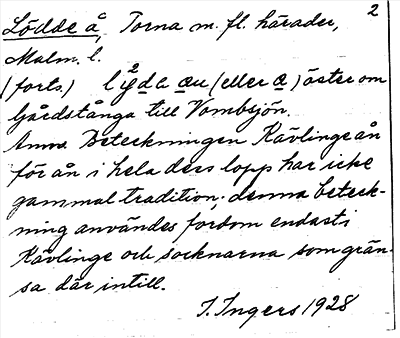 2
Lödde å, Torna m. fl. härader,
Malm. l.
(forts.) (eller a) öster om
Gårdstånga till Vombsjön.
Anm. Beteckningen Kävlingeån
för ån i hela dess lopp har icke
gammal tradition; denna beteck-
ning användes fordom endast i
Kävlinge och socknarna som grän-
sa där intill.
I. Ingers 1928